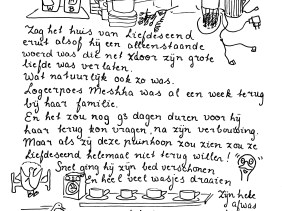 Zag het huis van Liefdeseend
eruit alsof hij een alleenstaande
woerd was die net door zijn grote
liefde was verlaten.
Wat natuurlijk ook zo was.
Logeerpoes Meshka was al een week terug
bij haar familie.
En het zou nog 93 dagen duren voor hij
haar terug kon vragen, na zijn verbouwing.
Maar als zij deze puinhoop zou zien zou ze
Liefdeseend helemaal niet terug willen!
Snel ging hij zijn bed verschonen
En heel veel wasjes draaien
Zijn hele
afwas